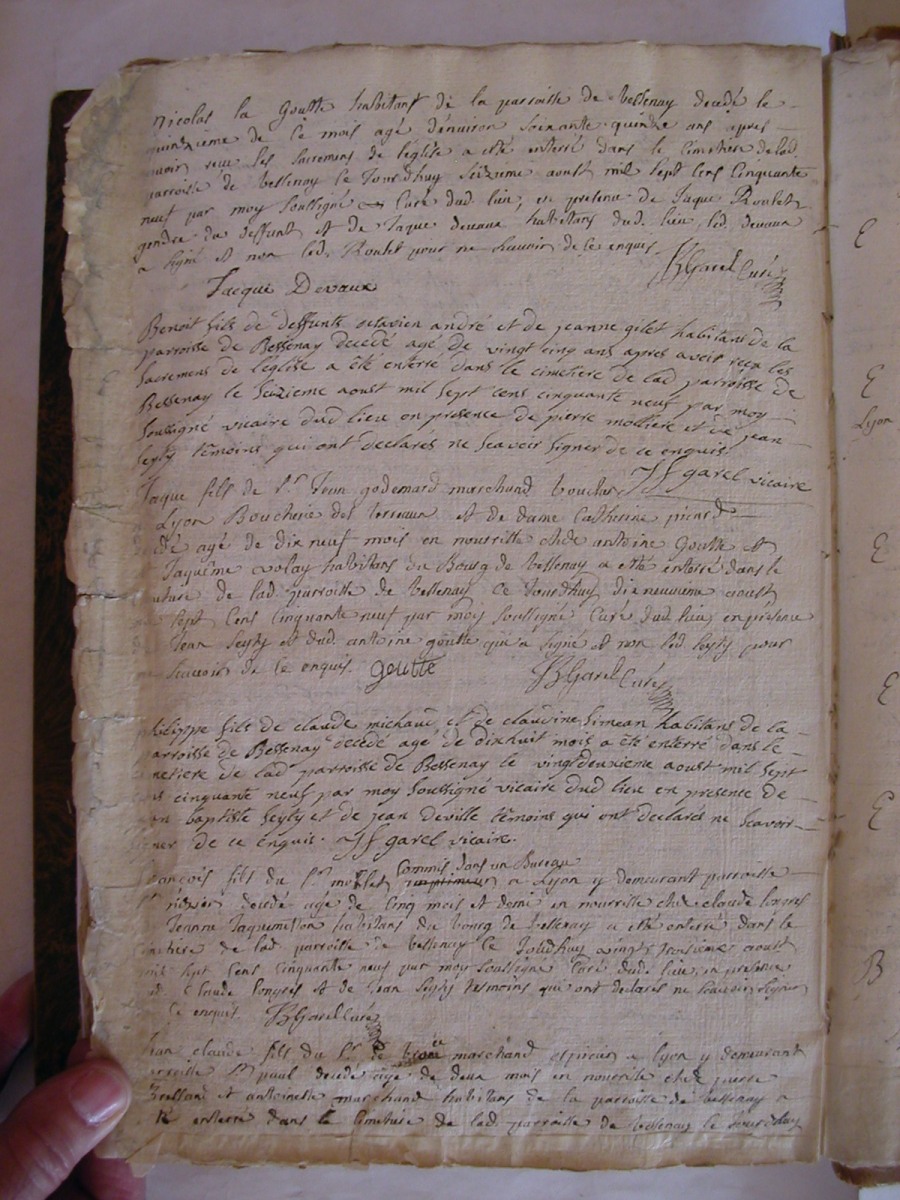 Nicolas la Goutte habitant de la parroisse de Bessenay decedé le
quinzieme de ce mois agé d'environ soixante quinze ans apres
avoir reçu les sacremens de l'église a eté enterré dans le cimetiere de lad.
parroisse de Bessenay ce Jourdhuy seizieme aoust mil sept cens cinquante
neuf par moy soussigné Curé dud. lieu, en presence de Jaque Roulet
gendre du deffunt et de Jaque devaux habitans dud. lieu, led. devaux
a signé et non led. Roulet pour ne sçauoir de ce enquis
JB Garel Curé
Jacque Devaux
Benoit fils de deffunts octavien andré et de jeanne gilet habitans de la
parroisse de Bessenay decedé agé de vingt cinq ans apres avoir reçu les
sacremens de l'eglise a été enterré dans le cimetiere de lad parroisse de
Bessenay le seizieme aoust mil sept cens cinquante neuf par moy
soussigné vicaire dud lieu en presence de pierre molliere et de jean
seyty témoins qui ont declarés ne scavoir signer de ce enquis
JF garel vicaire
Jaque fils de Sr Jean godemard marchand boucher
Lyon Boucherie des terreaux et de dame Catherine picard
agé de dix neuf mois en nourrisse chés antoine Goutte et
Jaqueme volay habitans du Bourg de Bessenay a eté enterré dans le
de lad. parroisse de Bessenay ce Jourdhuy dixneuvieme aoust
sept cens cinquante neuf par moy soussigné Curé dud. lieu, en présence
Jean Seyty et dud. antoine goutte qui a signé et non led. Seyty pour
sçavoir de ce enquis. goutte JB Garel Curé
philippe fils de claude michaud et de claudine simean habitans de la
parroisse de Bessenay decedé agé de dixhuit mois a été enterré dans le
cimetiere de lad parroisse de Bessenay le vingtdeuxieme aoust mil sept
cens cinquante neuf par moy soussigné vicaire dud lieu en presence de
jean baptiste seyty et de jean deville témoins qui ont declarés ne scavoir
signer de ce enquis. JF garel vicaire.
Commis dans un Bureau
françois fils du Sr mollet imprimeur a Lyon y demeurant parroisse
St nizier decedé agé de cinq mois et demi en nourrisse chés claude longres
Jeanne Jaquemetton habitans du bourg de Bessenay a eté enterré dans le
cimetiere de lad parroisse de Bessenay ce Jourdhuy vingt troisieme aoust
mil sept cens cinquante neuf par moy soussigné Curé dud. lieu, en présence
dud. Claude longres et de Jean Seyty tesmoins qui ont declarés ne sçauoir signer
de ce enquis. JB Garel Curé
Jean claude fils du Sr marchand epicier a lyon y demeurant
parroisse St paul decedé agé de deux mois en nourrisse chés pierre
et antoinette marchand habitans de la parroisse de Bessenay a
eté enterré dans le cimetiere de lad. parroisse de Bessenay le Jourdhuy
E
E
Lyon
E
E
E
B